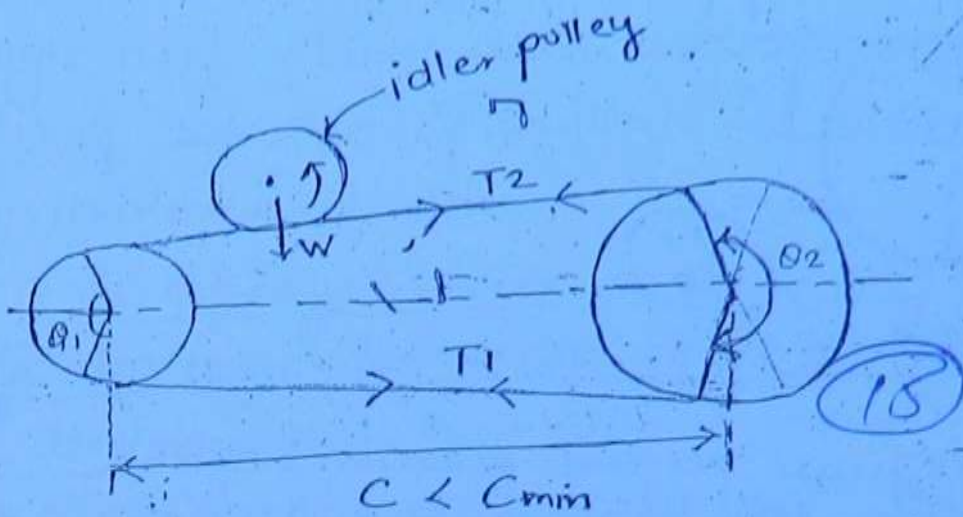 idler pulley
T2
W
θ2
θ1
T1
15
C < Cmin